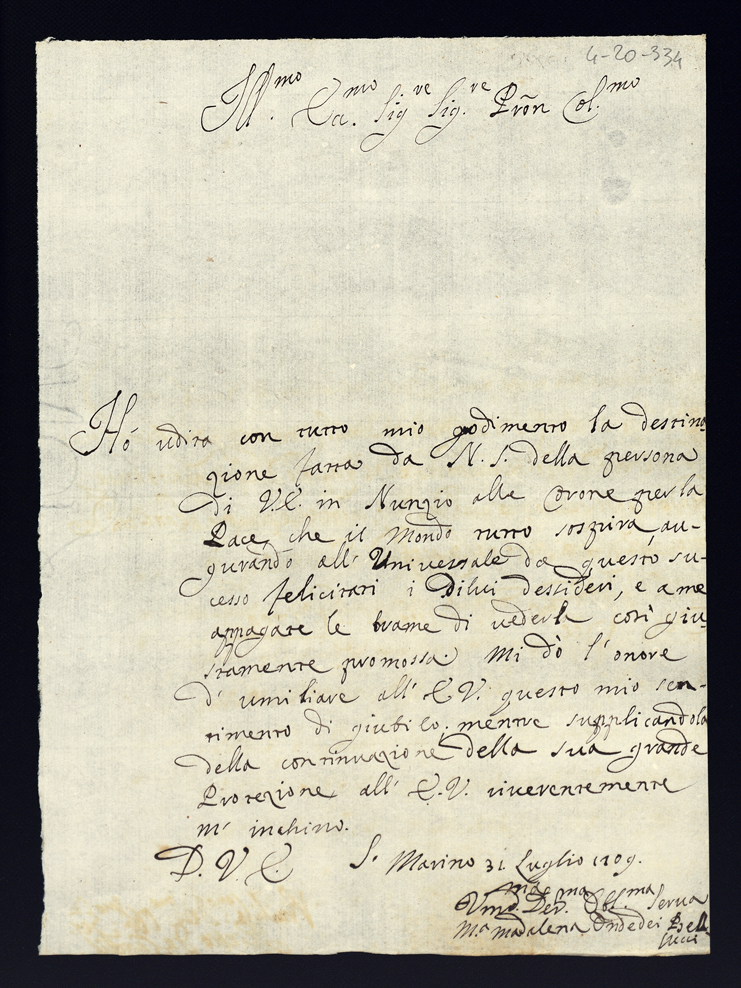 4-20-334
Ill.mo Ecc.mo Sig.re Sig.re Pron Col.mo
Hò udita con tutto mio godimento la destina
zione fatta da N. S. della persona
di V.E. in Nunzio alle Corone per la
Pace, che il Mondo tutto sospira, au-
gurando all' Universale da questo su-
cesso felicitati i Dilui desideri, e a me
appagate le brame di vederla così giu
stamente promossa. Mi dò l'onore
d' umiliare all' E.V. questo mio sen-
timento di giubilo, mentre supplicandola
della continuazione della sua grande
Protezione all' E.V. riverentemente
m' inchino.
D. V. E. S. Marino 31 Luglio 1709.
Um.a Dev.ma Obl.ma Serva
M.a Madalena Ondedei Bell
lucci